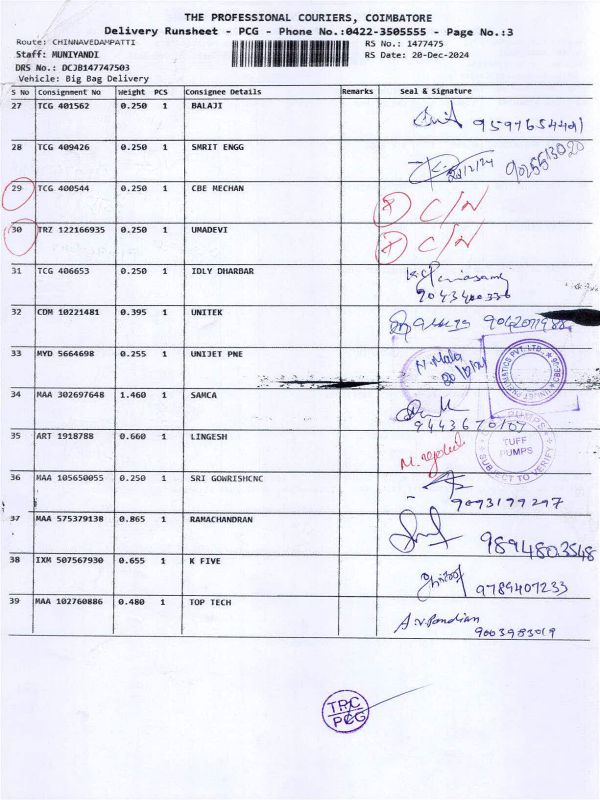 THE PROFESSIONAL COURIERS, COIMBATORE
Delivery Runsheet - PCG - Phone No.:0422-3505555 - Page No.:3
Route: CHINNAVEDAMPATTI RS No.: 1477475
Staff: MUNIYANDI RS Date: 20-Dec-2024
DRS No.: DCJB147747503
Vehicle: Big Bag Delivery
S No Consignment No Weight PCS Consignee Details Remarks Seal & Signature
27 TCG 401562 0.250 1 BALAJI 9597654491
28 TCG 409426 0.250 1 SMRIT ENGG 20/12/24 9025513020
29 TCG 400544 0.250 1 CBE MECHAN C/N
30 TRZ 122166935 0.250 1 UMADEVI C/N
31 TCG 406653 0.250 1 IDLY DHARBAR
9043400336
32 CDM 10221481 0.395 1 UNITEK 9042077988
33 MYD 5664698 0.255 1 UNIJET PNE N. Mala
34 MAA 302697648 1.460 1 SAMCA
9443670107
35 ART 1918788 0.660 1 LINGESH PUMPS
TUFF
PUMPS
SUBJECT TO VERIFY
36 MAA 105650055 0.250 1 SRI GOWRISHCNC
9093199297
37 MAA 575379138 0.865 1 RAMACHANDRAN 9894803548
38 IXM 507567930 0.655 1 K FIVE 9789407233
39 MAA 102760886 0.480 1 TOP TECH A.v.Pandian
9003983019
TRC
PCG